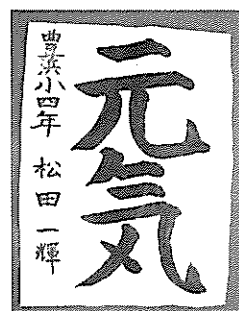 元気
豊浜小四年 松田一輝